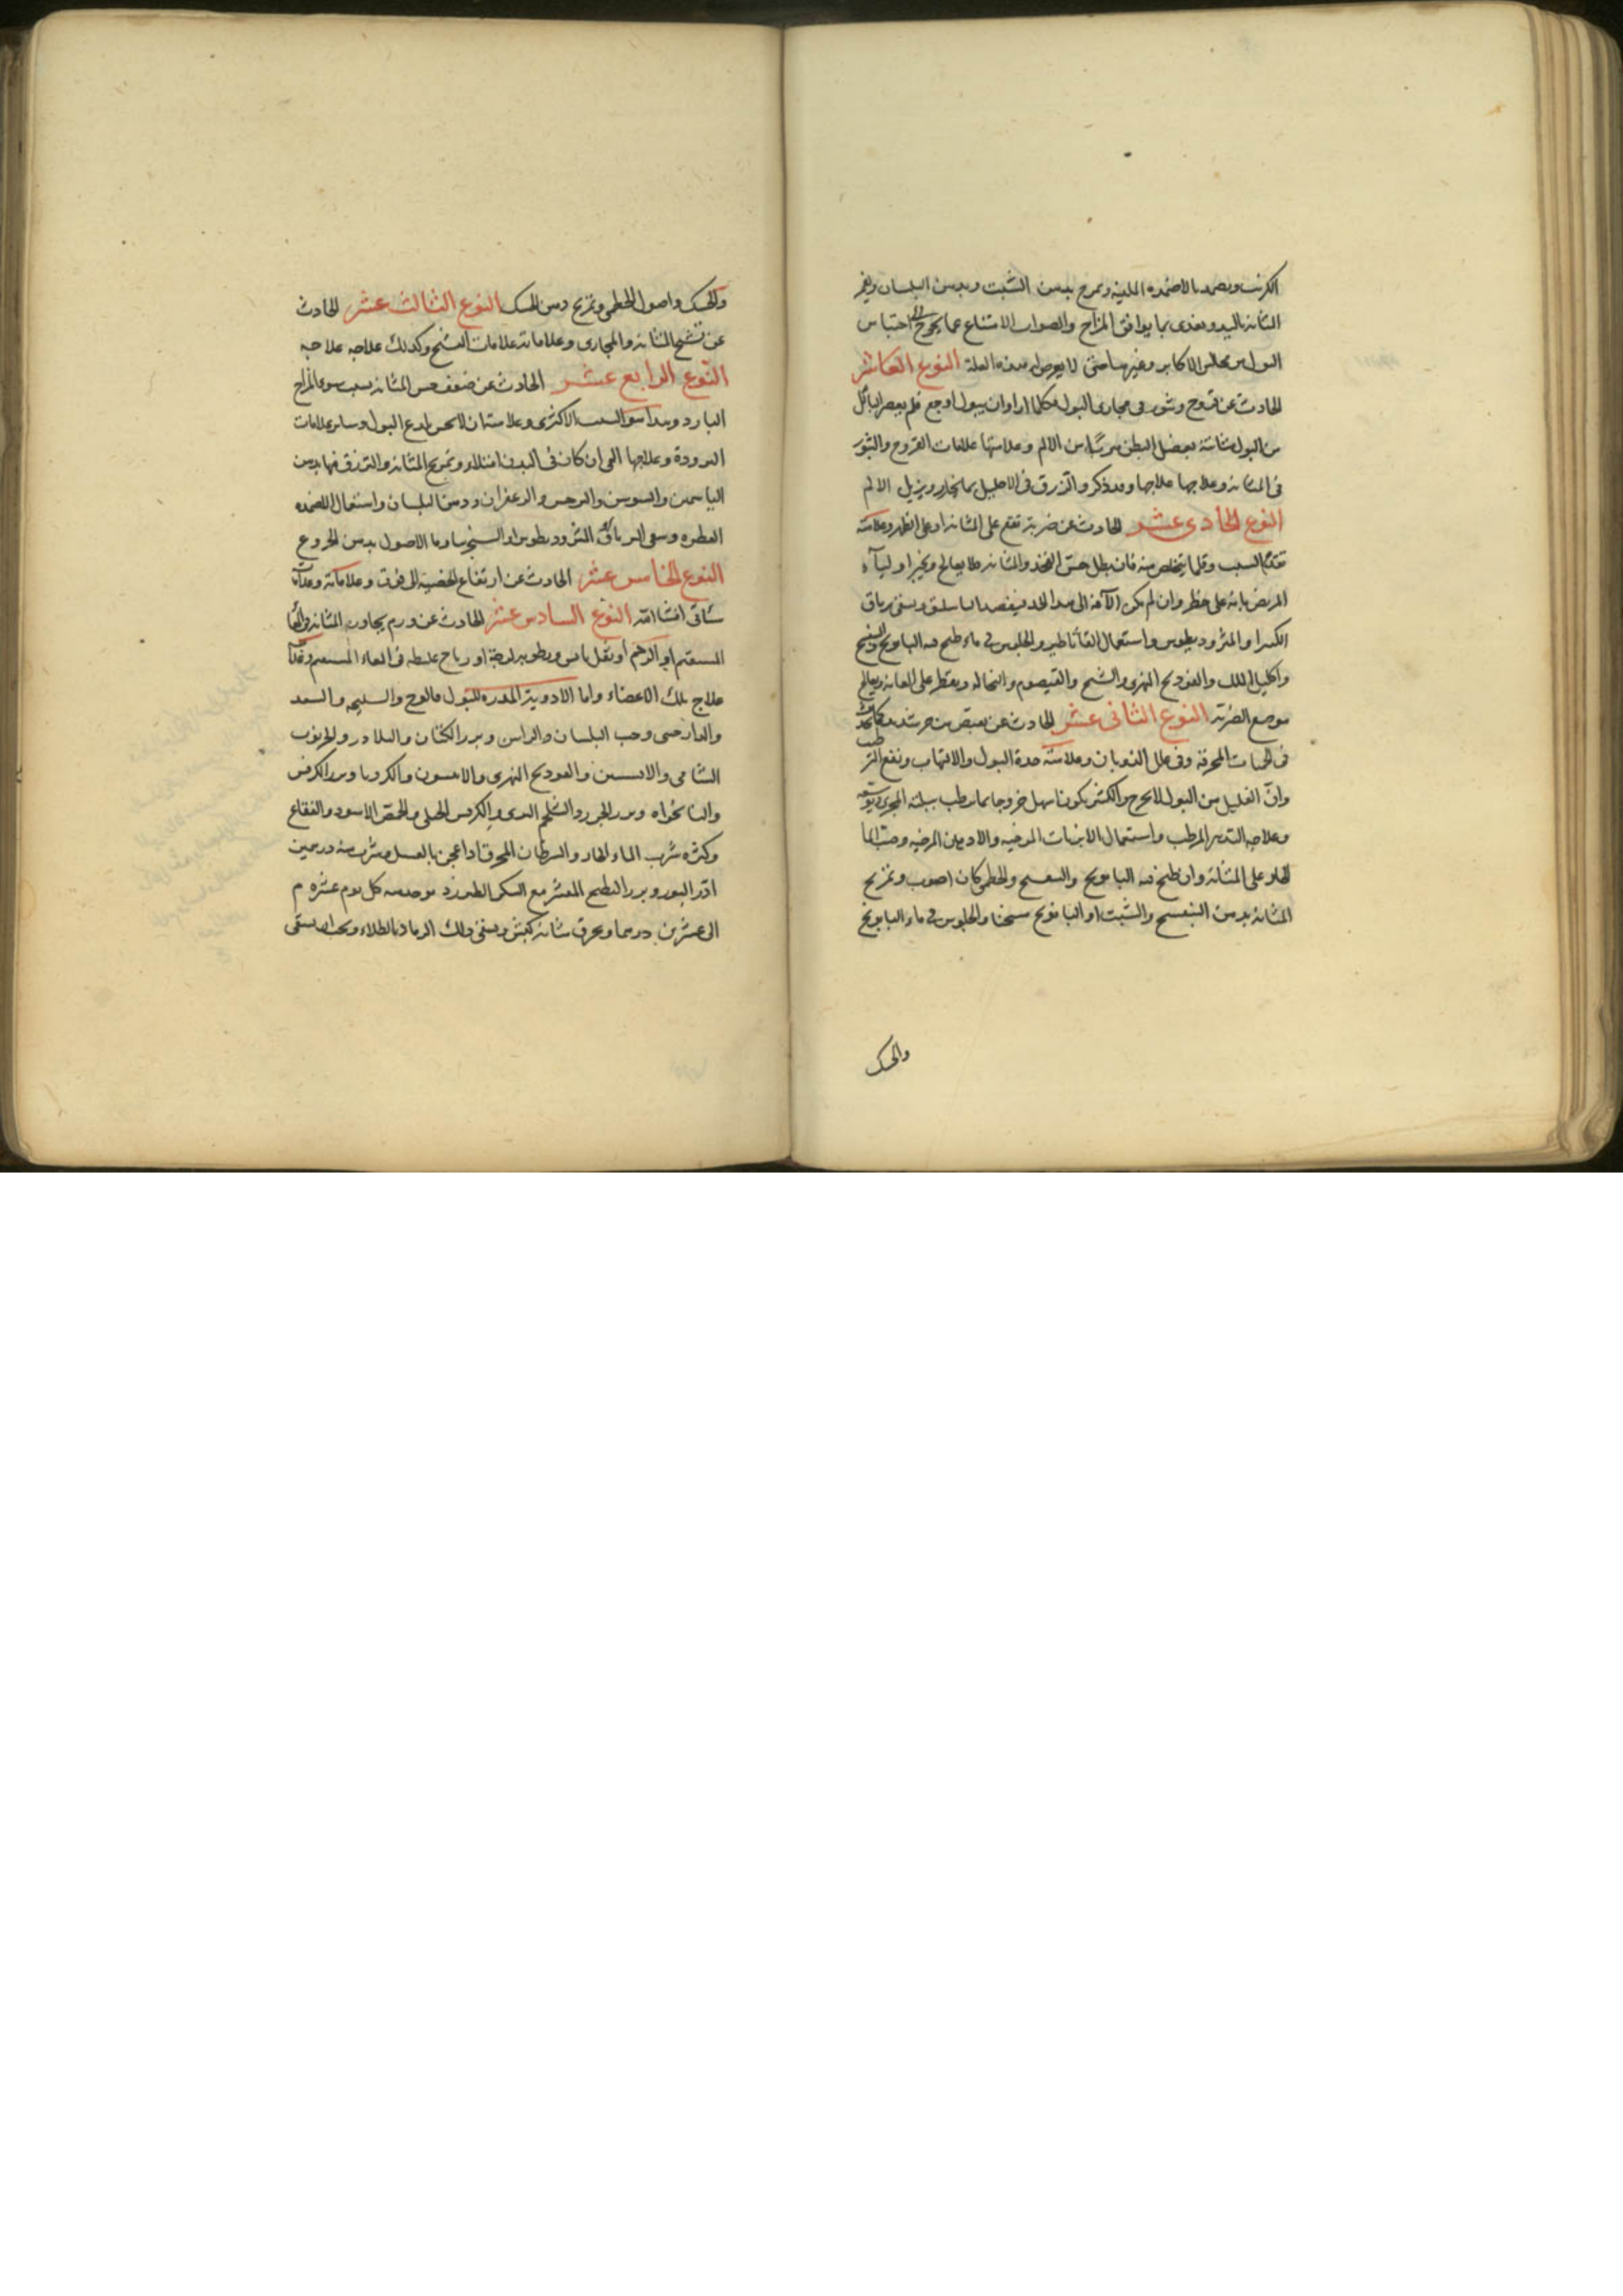 الكرنب ويضمد بالاضمده الملينه ويمرخ بدهن الشبت وبدهن البلسان ويغمز
المثانة باليد ويغذى بما يوافق المزاج والصواب الامتناع عما يحوج الى احتباس
البول من مجالس الاكابر وغيرها حتى لا يعرض له هذه العلة النوع العاشر
الحادث عن قروح وبثور فى مجارى البول فكلما اراد ان يبول اوجع فلم يعصر
من البول مثانته بعضل البطن هربا من الالم وعلامتها علامات القروح والبثور
فى المثانه وعلاجها علاجها وقد ذكر والتزرق فى الاحليل بما يخدر ويزيل الالم
النوع الحادى عشر الحادث عن ضربة تقع على المثانة او على الظهر وعلامته
تقدم السبب وقلما يتخلص منه فان بطل حس الفخذ والمثانه فلا يعالج ويخبر اولياء
المريض بانه على خطر وان لم يكن الآفة الى هذا الحد فيفصد الباسليق ويسقى ترياق
الكبير او المثرود يطوس واستعمال القاثاطير والجلوس فى ماء طبخ فيه البابونج والبنفسج
واكليل الملك والفودنج النهرى والشيح والقيصوم والنخاله ويقطر على العانة ويعالج
موضع الضربة النوع الثانى عشر الحادث عن تقبض من حر شديد كما يحدث
فى الحميات المحرقة وفى علل الذوبان وعلامته حدة البول والالتهاب ونفع الترطيب
وان القليل من البول لا يخرج والكثير يكون اسهل خروجا بما يرطب ببلته المجرى ويوسعه
وعلاجه التدبير المرطب واستعمال الابزنات المرخيه والادهان المرخيه وصب الماء
الحار على المثانة وان طبخ فيه البابونج والبنفسج والخطمى كان اصوب وتمريخ
المثانة بدهن البنفسج والشبت او البابونج مسخنا والجلوس فى ماء البابونج
والحسك
والحسك واصول الخطمى وتمريخ دهن الحسك النوع الثالث عشر الحادث
عن تشنج المثانه والمجارى وعلاماته علامات التشنج وكذلك علاجه علاجه
النوع الرابع عشر الحادث عن ضعف حس المثانه بسبب سوء المزاج
البارد وهذا هو السبب الاكثرى وعلامته ان لا يحس بلدغ البول وساير علامات
البرودة وعلاجها القى ان كان فى البدن امتلاء وتمريخ المثانه والتزرق فيها بدهن
الياسمين والسوسن والنرجس والزعفران ودهن البلسان واستعمال الاضمده
العطره وسقى الترياق والمثرود يطوس او السنجرينا وماء الاصول بدهن الخروع
النوع الخامس عشر الحادث عن ارتفاع الخصية الى فوق وعلاماته وعلاجاته
ستاتى انشا الله النوع السادس عشر الحادث عن ورم يجاور المثانه فى المعا
المستقيم او الرحم او ثفل يابس ورطوبه لزجة او رياح غليظه فى المعاء المستقيم وعلاجه
علاج تلك الاعضاء واما الادوية المدره للبول فالوج والسليخه والسعد
والدارصينى وحب البلسان والراسن وبزر الكتان والبلادر والخرنوب
الشامى والافسنتين والفودنج النهرى والانيسون والكرويا وبزر الكرفس
والنانخواه وبزر الجزر والشلجم البرى والكرفس الجبلى والحمص الاسود والفقاع
وكثره شرب الماء الحار والسرطان المحرق اذا عجن بالعسل وشرب منه درهمين
ادر البول وبزر البطيخ المقشر مع السكر الطبرزد يوخذ منه كل يوم عشرة م
الى عشرين درهما ويحرق مثانة كبش ويسقى ذلك الرماد بالطلاء ويجب ان يسقى